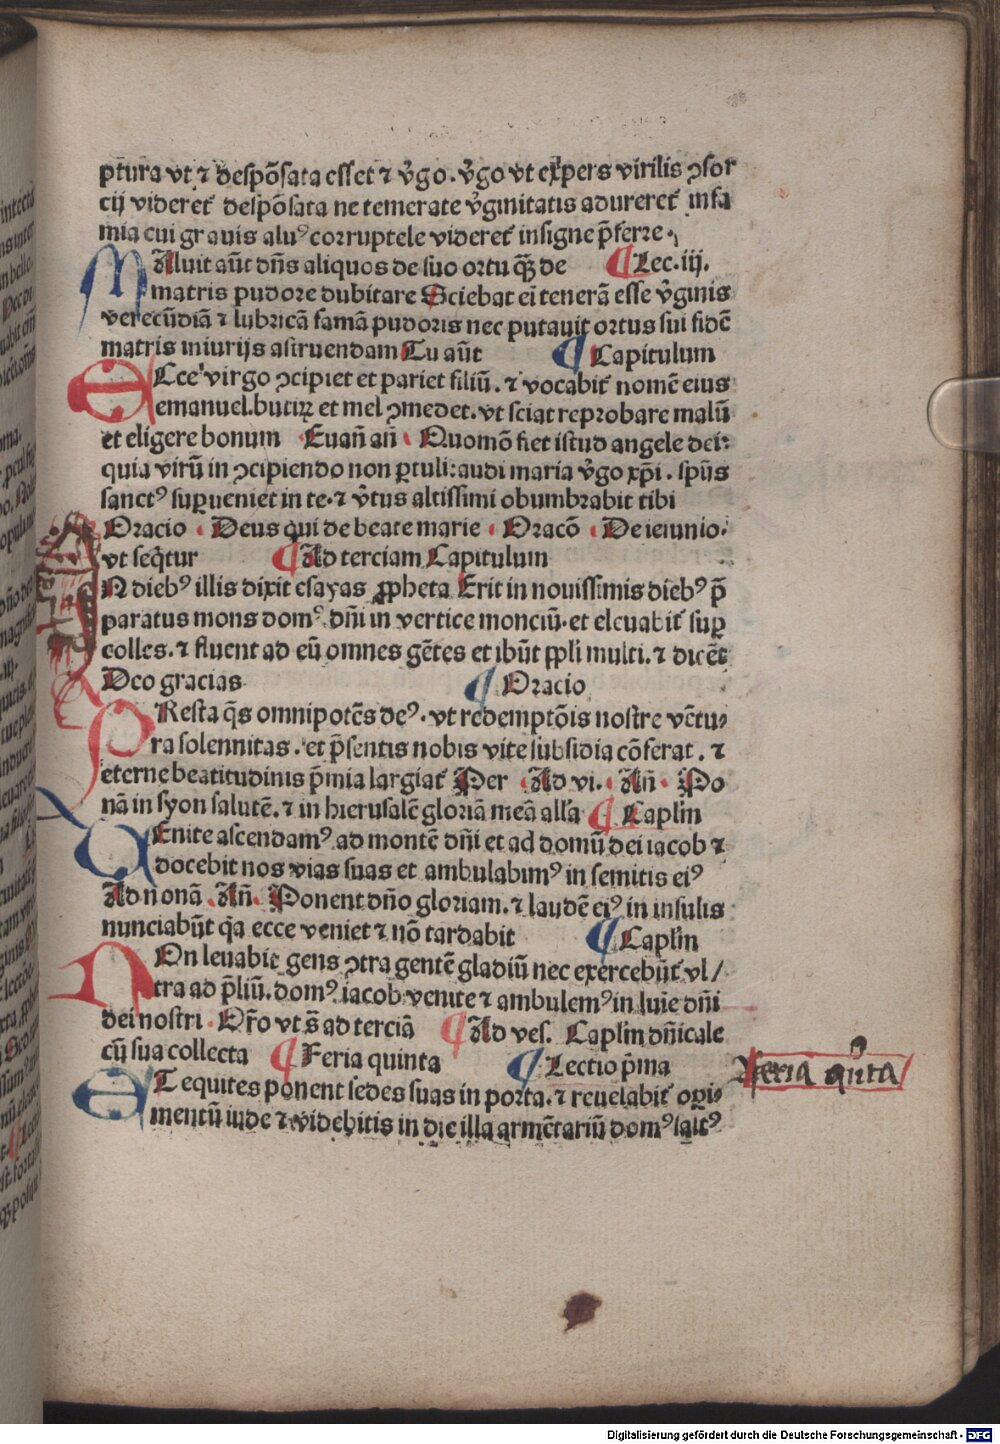 ptura vt ⁊ despõsata esset ⁊ v̓go. v̓go vt expers virilis ꝯsor
cij videret᷑ despõsata ne temerate v̓ginitatis adureret᷑ infa
mia cui grauis aluꝰ corruptele videret᷑ insigne p̄ferre.
MAluit aūt dn̄s aliquos de suo ortu q̄ꝫ de ¶ Lec. iij.
matris pudore dubitare Sciebat em̄ tenerā esse v̓ginis
verecūdiā ⁊ lubricā famā pudoris nec putauit ortus sui fidē
matris iniurijs astruendam Tu aūt ¶ Capitulum
ECce virgo ꝯcipiet et pariet filiū. ⁊ vocabit᷑ nomē eius
emanuel. butirꝝ et mel ꝯmedet. vt sciat reprobare malū
et eligere bonum Euan̄ an̄ Quomō fiet istud angele dei:
quia virū in ꝯcipiendo non ꝑtuli: audi maria v̓go xp̄i. sp̄ūs
sanctꝰ suꝑueniet in te. ⁊ v̓tus altissimi obumbrabit tibi
Oracio Deus qui de beate marie Oracō De ieiunio.
vt seq̄tur ¶ Ad terciam Capitulum
IN diebꝰ illis dixit esayas ꝓpheta Erit in nouissimis diebꝰ p̄
paratus mons domꝰ dn̄i in vertice monciū. et eleuabit᷑ suꝑ
colles. ⁊ fluent ad eū omnes gētes et ibūt pp̄li multi. ⁊ dicēt
Deo gracias ¶ Oracio
PResta q̄s omnipotēs deꝰ. vt redemptōis nostre vētu⸗
ra solennitas. et p̄sentis nobis vite subsidia cōferat. ⁊
eterne beatitudinis p̄mia largiat᷑ Per Ad vi. An̄ Po
nā in syon salutē. ⁊ in hierusalē gloriā meā alla ¶ Caplm̄
VEnite ascendamꝰ ad montē dn̄i et ad domū dei iacob ⁊
docebit nos vias suas et ambulabimꝰ in semitis eiꝰ
Ad nonā An̄ Ponent dn̄o gloriam. ⁊ laudē eiꝰ in insulis
nunciabūt q̄a ecce veniet ⁊ nō tardabit ¶ Caplm̄
NOn leuabit gens ꝯtra gentē gladiū nec exercebūt᷑ vl/
tra ad p̄liū. domꝰ iacob venite ⁊ ambulemꝰ in lūie dn̄i
dei nostri. Or̄o vt s̄ ad terciā ¶ Ad ves. Caplm̄ dn̄icale
cū sua collecta ¶ Feria quinta ¶ Lectio p̄ma
ET equites ponent sedes suas in porta. ⁊ reuelabit᷑ oꝑi⸗
mentū iude ⁊ videbitis in die illa armētariū domꝰ saltꝰ
feria quīta
Digitalisierung gefördert durch die Deutsche Forschungsgemeinschaft - DFG